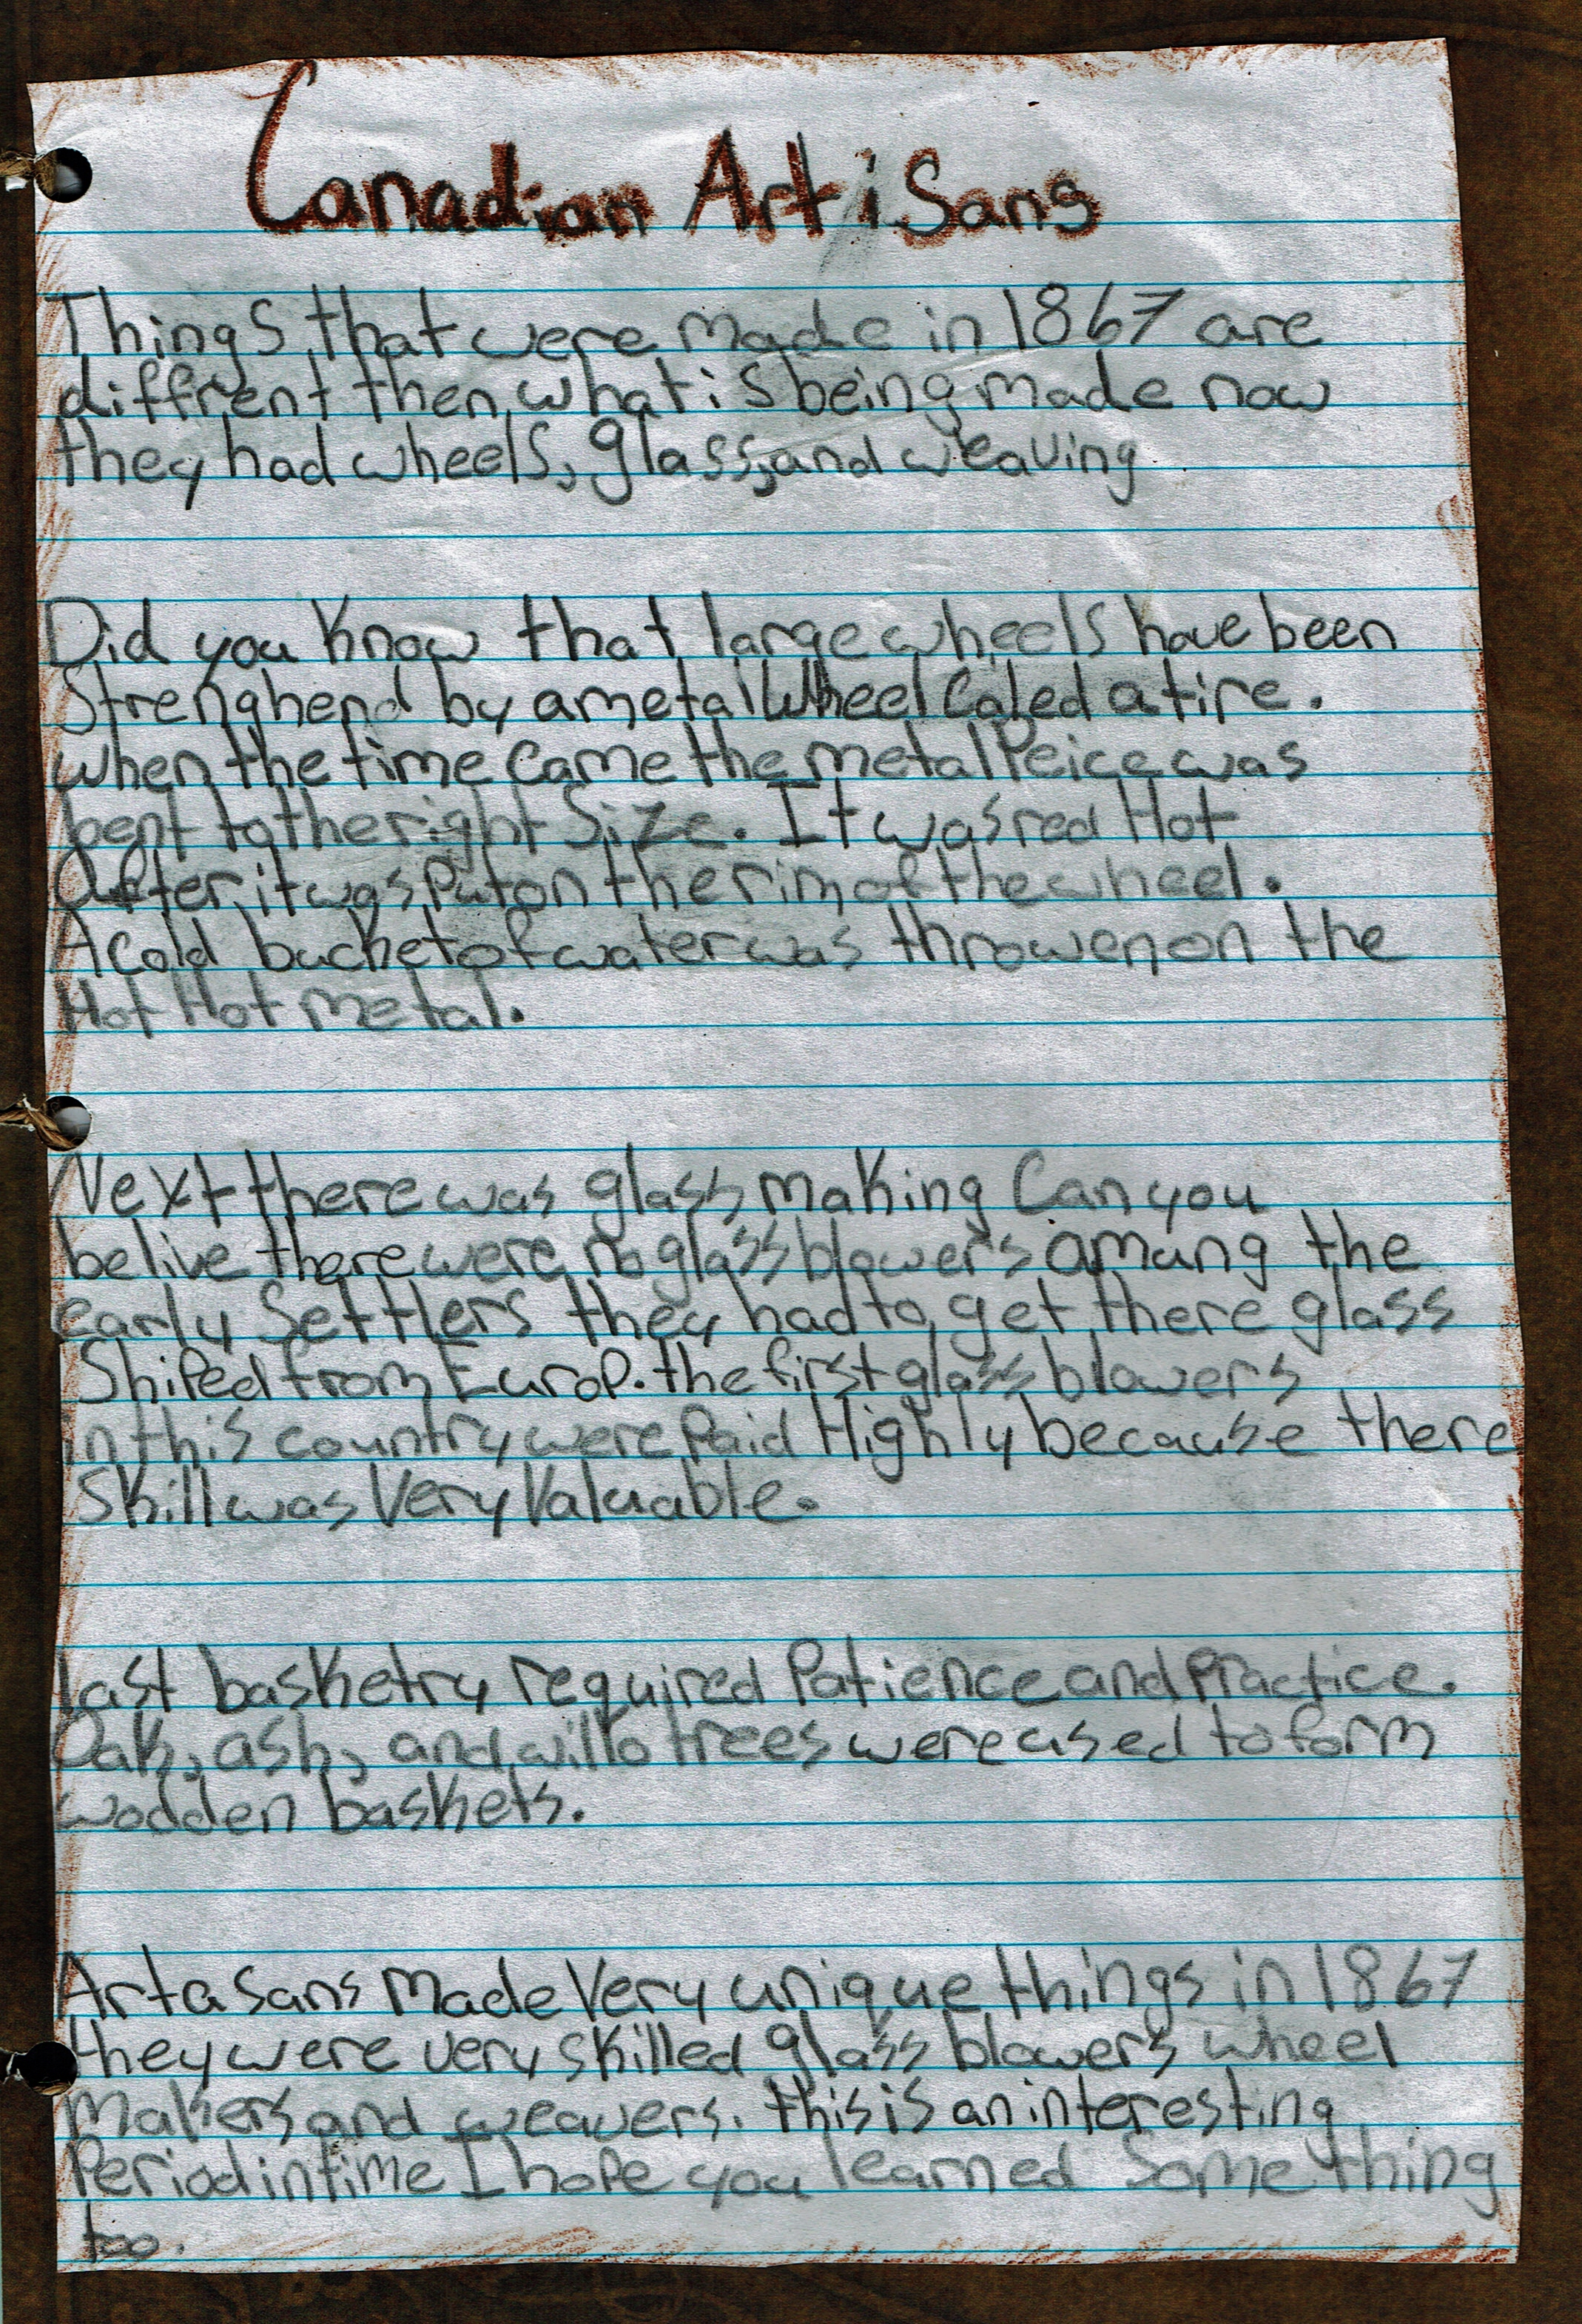 Canadian Artisans
Things that were made in 1867 are
diffrent then what is being made now
they had wheels, glass, and weaving
Did you know that large wheels have been
Strenghend by a metal wheel Caled a tire.
when the time came the metal Peice was
bent to the right Size. It was red Hot
After it was Put on the rim of the wheel.
A cold bucket of water was throwen on the
Hot Hot metal.
Next there was glass making Can you
belive there were no glass blowers amung the
early Settlers they had to get there glass
Shiped from Europ. the first glass blowers
in this country were Paid Highly because there
Skill was Very Valuable.
Last basketry required Patience and Practice.
Oak, ash, and willo trees were used to form
wodden baskets.
Artasans Made Very unique things in 1867
they were very skilled glass blowers wheel
Makers and weavers. this is an interesting
Period in time I hope you learned Some thing
too.